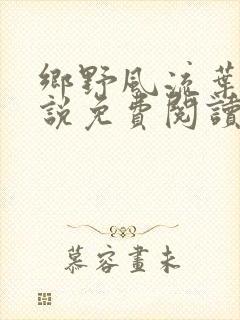 鄉野風流葉
說免費閱讀
慕容畫未